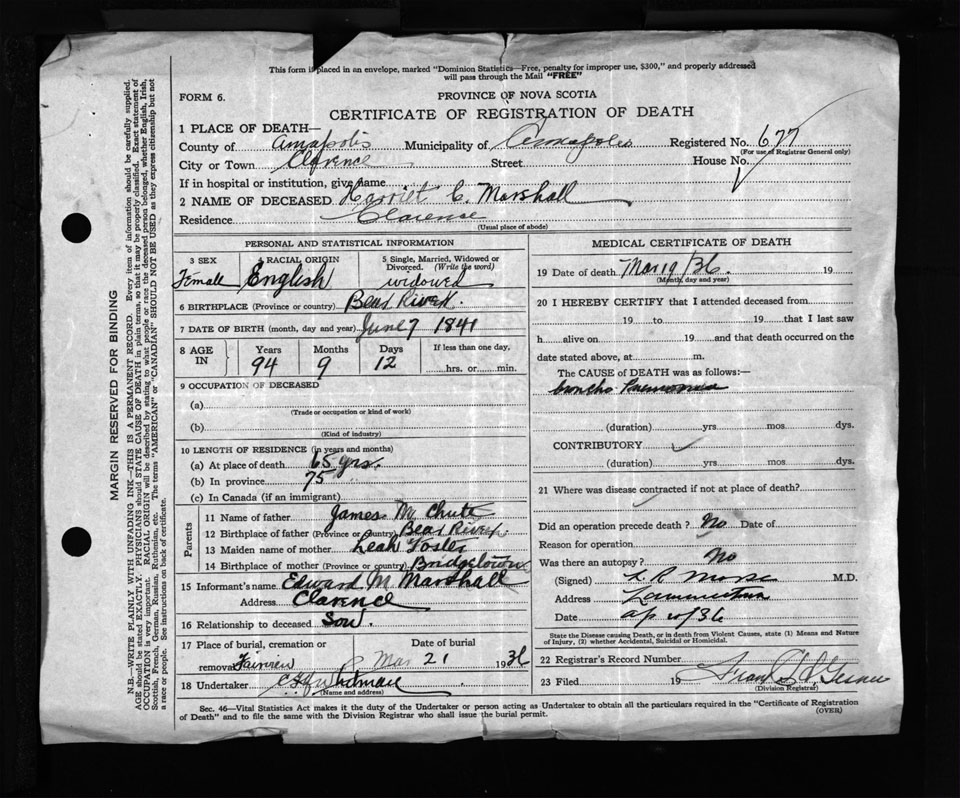 This form is placed in an envelope, marked "Dominion Statistics—Free, penalty for improper use, $300," and properly addressed
will pass through the Mail "FREE"
FORM 6.
PROVINCE OF NOVA SCOTIA
CERTIFICATE OF REGISTRATION OF DEATH
1 PLACE OF DEATH—
County of Annapolis Municipality of Annapolis Registered No. 677
(For use of Registrar General only)
City or Town Clarence Street House No.
If in hospital or institution, give name
2 NAME OF DECEASED Harriet C. Marshall
Residence Clarence
(Usual place of abode)
PERSONAL AND STATISTICAL INFORMATION
3 SEX Female
4 RACIAL ORIGIN English
5 Single, Married, Widowed or Divorced. (Write the word) widowed
6 BIRTHPLACE (Province or country) Bear River.
7 DATE OF BIRTH (month, day and year) June 7 1841
8 AGE IN Years 94 Months 9 Days 12 If less than one day, hrs. or min.
9 OCCUPATION OF DECEASED
(a)
(Trade or occupation or kind of work)
(b)
(Kind of industry)
10 LENGTH OF RESIDENCE (in years and months)
(a) At place of death 65 yrs.
(b) In province 75 "
(c) In Canada (if an immigrant)
Parents
11 Name of father James M. Chute
12 Birthplace of father (Province or Country) Bear River.
13 Maiden name of mother Leah Foster
14 Birthplace of mother (Province or Country) Bridgetown
15 Informant's name Edward M. Marshall
Address Clarence
16 Relationship to deceased Son.
17 Place of burial, cremation or removal Date of burial
Mar 21 1936
18 Undertaker Whitman
(Name and address)
MEDICAL CERTIFICATE OF DEATH
19 Date of death Mar 19/36. 19
(Month, day and year)
20 I HEREBY CERTIFY that I attended deceased from
19 to 19 that I last saw
h alive on 19 and that death occurred on the
date stated above, at m.
The CAUSE of DEATH was as follows:—
broncho Pneumonia
(duration) yrs mos dys.
CONTRIBUTORY
(duration) yrs. mos. dys.
21 Where was disease contracted if not at place of death?
Did an operation precede death? No Date of
Reason for operation
Was there an autopsy? No
(Signed) Morse M.D.
Address
Date
State the Disease causing Death, or in death from Violent Causes, state (1) Means and Nature
of Injury, (2) whether Accidental, Suicidal or Homicidal.
22 Registrar's Record Number
23 Filed 19
(Division Registrar)
Sec. 46—Vital Statistics Act makes it the duty of the Undertaker or person acting as Undertaker to obtain all the particulars required in the "Certificate of Registration
of Death" and to file the same with the Division Registrar who shall issue the burial permit.
(OVER)
MARGIN RESERVED FOR BINDING
N.B.—WRITE PLAINLY WITH UNFADING INK—THIS IS A PERMANENT RECORD. Every item of information should be carefully supplied.
AGE should be stated EXACTLY. PHYSICIANS should STATE CAUSE OF DEATH in plain terms, so that it may be properly classified. Exact statement of
OCCUPATION is very important. RACIAL ORIGIN will be described by stating to what people or race the deceased person belonged, whether English, Irish,
Scottish, French, German, Russian, Ruthenian, etc. The terms "AMERICAN" or "CANADIAN" SHOULD NOT BE USED as they express citizenship but not
a race or people. See instructions on back of certificate.